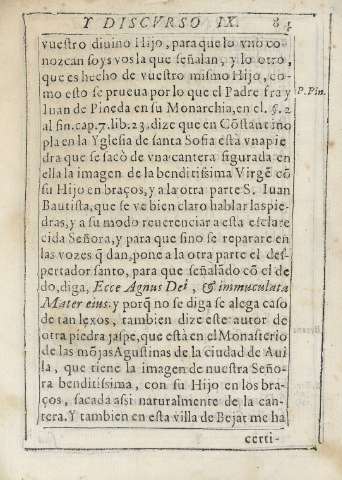 Y DISCVRSO IX. 84
vuestro diuino Hijo, para que lo vno co
nozcan soys vos la que señalan, y lo otro,
que es hecho de vuestro mismo Hijo, co-
mo esto se prueua por lo que el Padre fray
Iuan de Pineda en su Monarchia, en el. §. 2
al fin. cap. 7. lib. 23. dize que en Cõstantino
pla en la Yglesia de santa Sofia està vna pie
dra que se sacò de vna cantera figurada en
ella la imagen de la benditissima Virgẽ cõ
su Hijo en braços, y a la otra parte S. Iuan
Bautista, que se ve bien claro hablar las pie
dras, y a su modo reuerenciar a esta esclare
cida Señora, y para que sino se reparare en
las vozes q̃ dan, pone a la otra parte el des-
pertador santo, para que señalãdo cõ el de
do, diga, Ecce Agnus Dei, & immaculata
Mater eius. y porq̃ no se diga se alega caso
de tan lexos, tambien dize este autor de
otra piedra jaspe, que està en el Monasterio
de las mõjas Agustinas de la ciudad de Aui
la, que tiene la imagen de nuestra Seño-
ra benditissima, con su Hijo en los bra-
ços, sacada assi naturalmente de la can-
tera. Y tambien en esta villa de Bejar me ha
certi-
P. Pin.